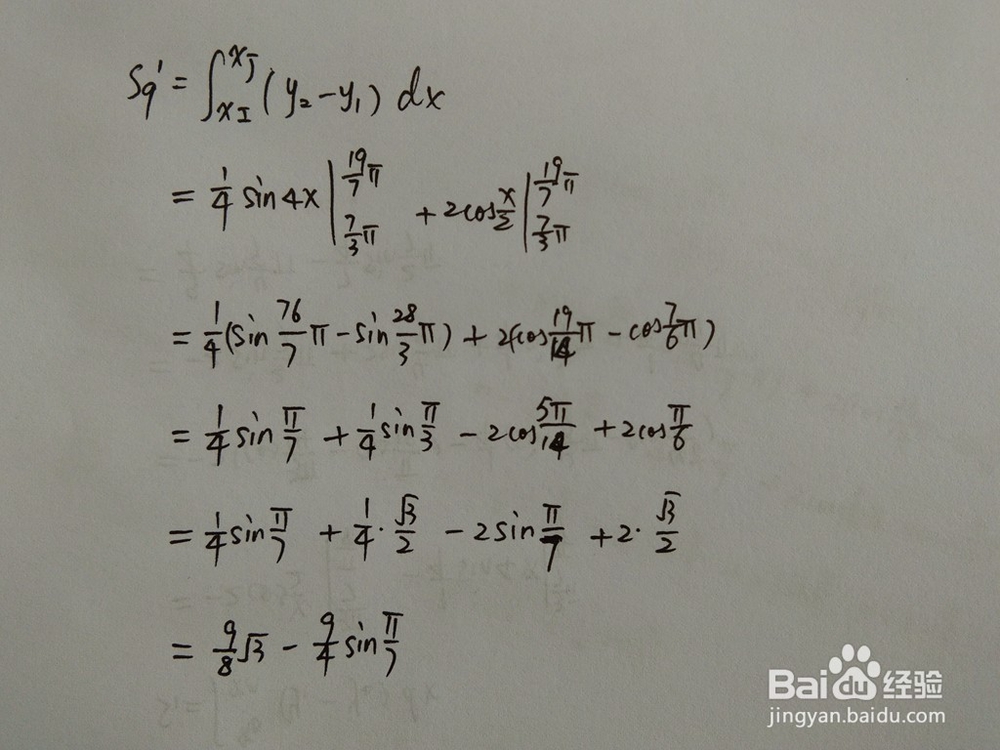 S₉' = ∫_{x_I}^{x_J} (y₂ - y₁) dx
= 1/4 sin4x |_{7/3 π}^{19/7 π} + 2cos x/2 |_{7/3 π}^{19/7 π}
= 1/4 (sin 76/7 π - sin 28/3 π) + 2(cos 19/14 π - cos 7/6 π)
= 1/4 sin π/7 + 1/4 sin π/3 - 2cos 5π/14 + 2cos π/6
= 1/4 sin π/7 + 1/4 · √3/2 - 2sin π/7 + 2 · √3/2
= 9/8 √3 - 9/4 sin π/7
Baidu 经验
jingyan.baidu.com